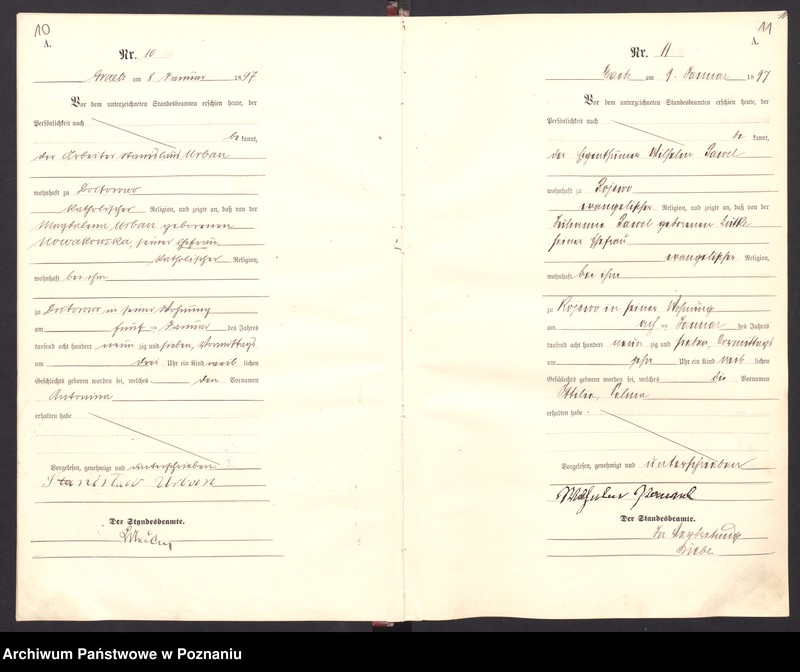 10
A.
Nr. 10
Graetz am 8 Januar 1897
Vor dem unterzeichneten Standesbeamten erschien heute, der
Persönlichkeit nach
be kannt,
der Arbeiter Stanislaus Urban
wohnhaft zu Doktorowo
katholischer Religion, und zeigte an, daß von der
Magdalena Urban geborenen
Nowakowska, seiner Ehefrau,
katholischer Religion,
wohnhaft bei ihm
zu Doktorowo in seiner Wohnung
am fünf ten Januar des Jahres
tausend acht hundert neun zig und sieben, Vormittags
um drei Uhr ein Kind weib lichen
Geschlechts geboren worden sei, welches den Vornamen
Antonina
erhalten habe
Vorgelesen, genehmigt und unterschrieben.
Stanisław Urban
Der Standesbeamte.
11
A.
Nr. 11
Graetz am 9. Januar 1897
Vor dem unterzeichneten Standesbeamten erschien heute, der
Persönlichkeit nach
be kannt,
der Eigenthümer Wilhelm
wohnhaft zu Kojewo
evangelischer Religion, und zeigte an, daß von der
Julianne geborenen Lüdtke
seiner Ehefrau
evangelischer Religion,
wohnhaft bei ihm
zu Kojewo in seiner Wohnung
am ach ten Januar des Jahres
tausend acht hundert neun zig und sieben, Vormittags
um zehn Uhr ein Kind weib lichen
Geschlechts geboren worden sei, welches die Vornamen
Ottilie, Selma
erhalten habe
Vorgelesen, genehmigt und unterschrieben
Wilhelm
Der Standesbeamte.
In Vertretung
Archiwum Państwowe w Poznaniu